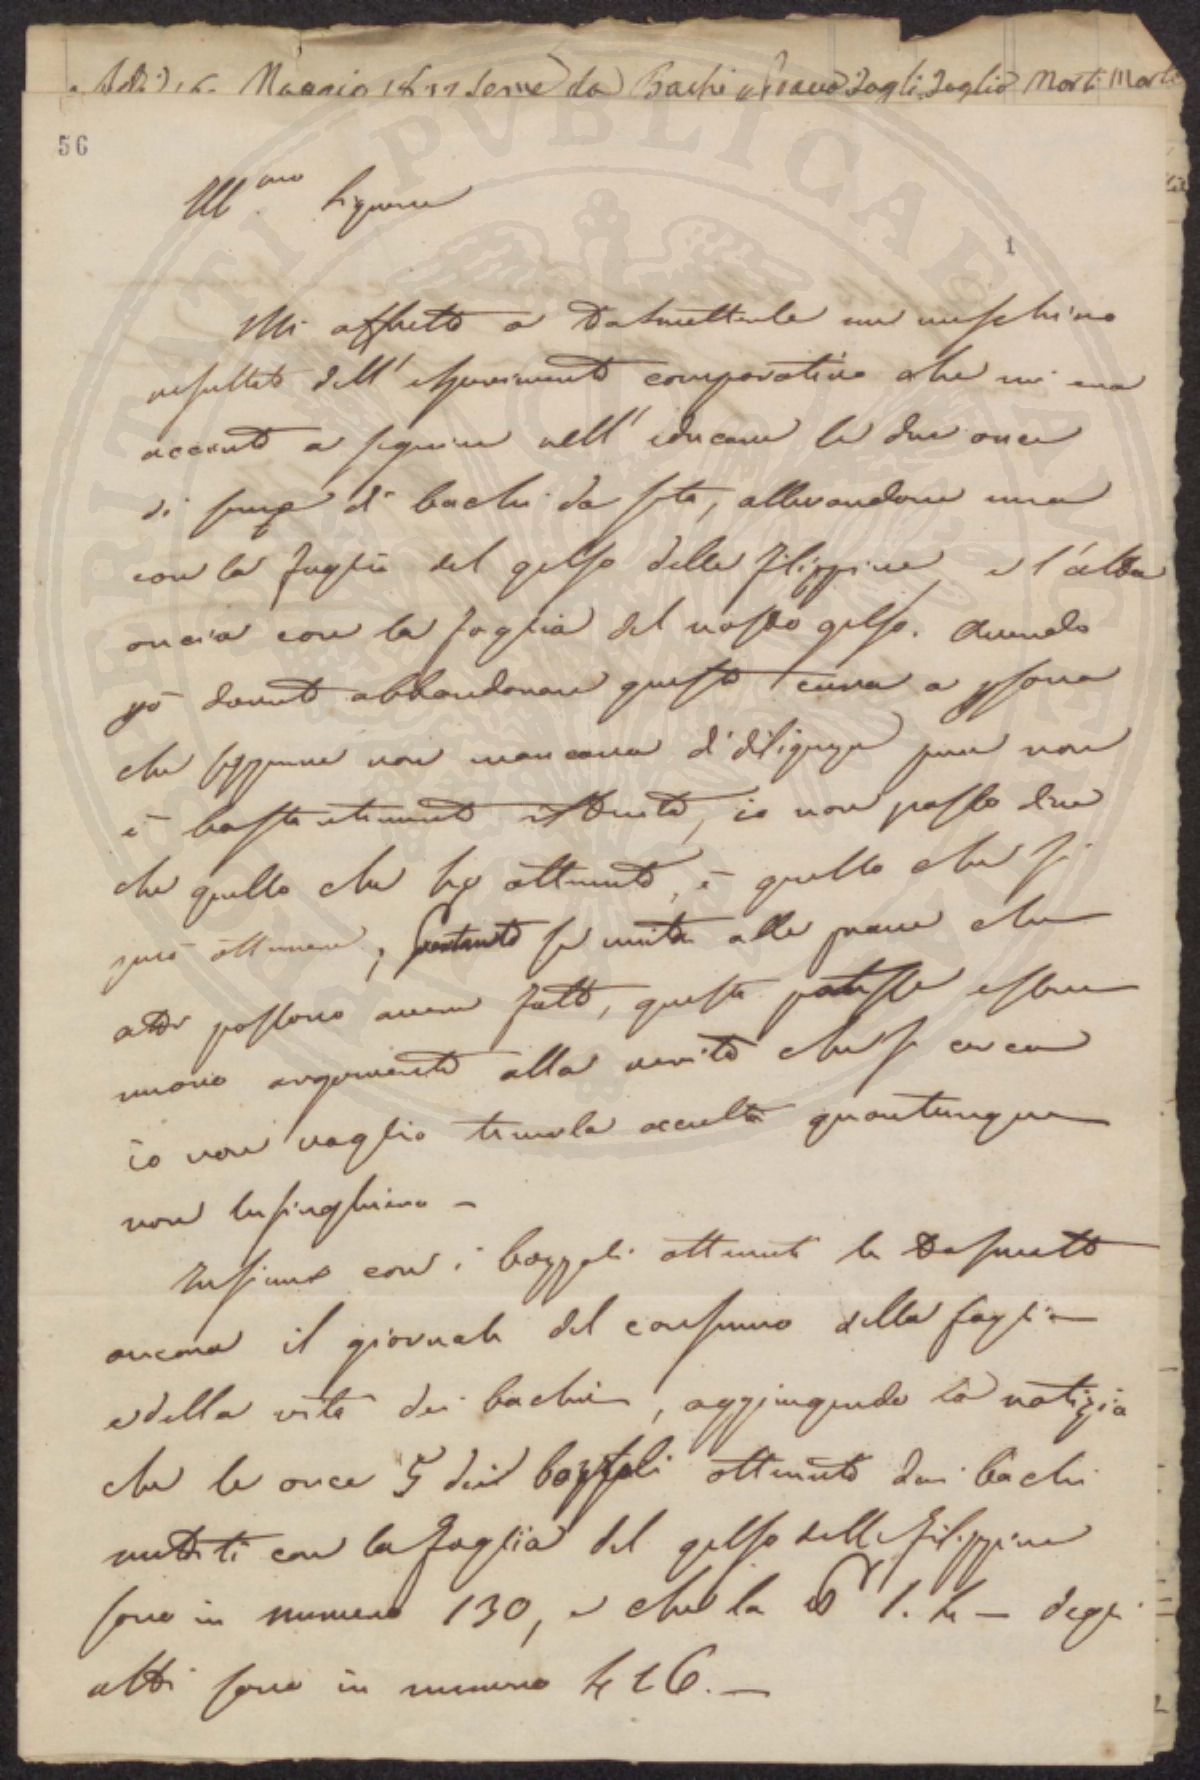 Maggio Seme da Bachi Fogli Foglio Morti Morti
56
Ill.mo Signore
1
Mi affretto a trasmetterle un meschino
resultato dell'esperimento comparativo che mi era
accinto a seguire nell'educare le due once
di seme di bachi da seta, allevandone una
con la foglia del gelso delle Filippine, e l'altra
oncia con la foglia del nostro gelso. Avendo
però dovuto abbandonare questa cura a persona
che seppure non mancava di diligenza pure non
è bastantemente istruita, io non posso dire
che quello che ho ottenuto, è quello che si
può ottenere; Pertanto se unita alle prove che
altri possono avere fatto, questa potesse essere
nuovo argomento alla verità che si cerca
io non voglio tenerla occulta quantunque
non lusinghiera -
Insieme con i bozzoli ottenuti le trasmetto
ancora il giornale del consumo della foglia
e della vita dei bachi, aggiungendo la notizia
che le once 5 dei bozzoli ottenuti dai bachi
nutriti con la foglia del gelso delle Filippine
sono in numero 130, e che la 1. 4 - degli
altri sono in numero 426. -